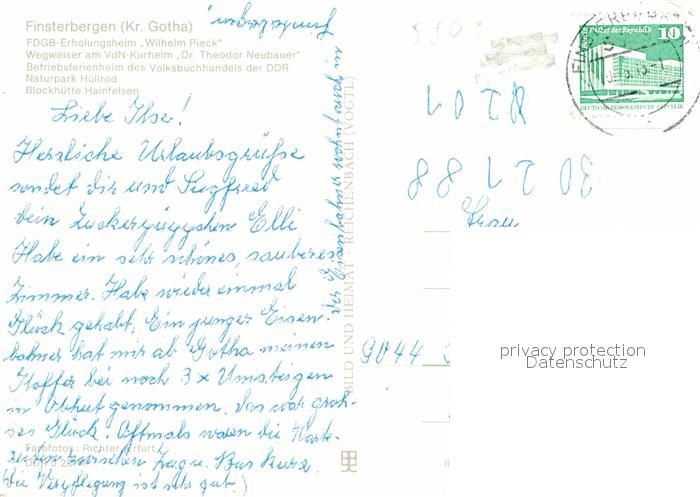 Finsterbergen (Kr. Gotha)
FDGB-Erholungsheim „Wilhelm Pieck"
Wegweiser am VdN-Kurheim „Dr. Theodor Neubauer"
Betriebsferienheim des Volksbuchhandels der DDR
Naturpark Hüllrod
Blockhütte Hainfelsen
Liebe Ilse!
Herzliche Urlaubsgrüße
sendet dir und Siegfried
dein Zuckerpüppchen Elli
Habe ein sehr schönes, sauberes
Zimmer. Habe wieder einmal
Glück gehabt. Ein junger Eisen-
bahner hat mir ab Gotha meinen
Koffer bei noch 3 x Umsteigen
in Obhut genommen. Das war gros-
ses Glück. Oftmals waren die Warte-
zeiten zwischen
die Verpflegung ist sehr gut.)
Farbfotos: Richter, Erfurt
BILD UND HEIMAT REICHENBACH (VOGTL)
Berlin Palast der Republik
10
DEUTSCHE DEMOKRATISCHE REPUBLIK
8201
302188
Frau
9044
privacy protection
Datenschutz